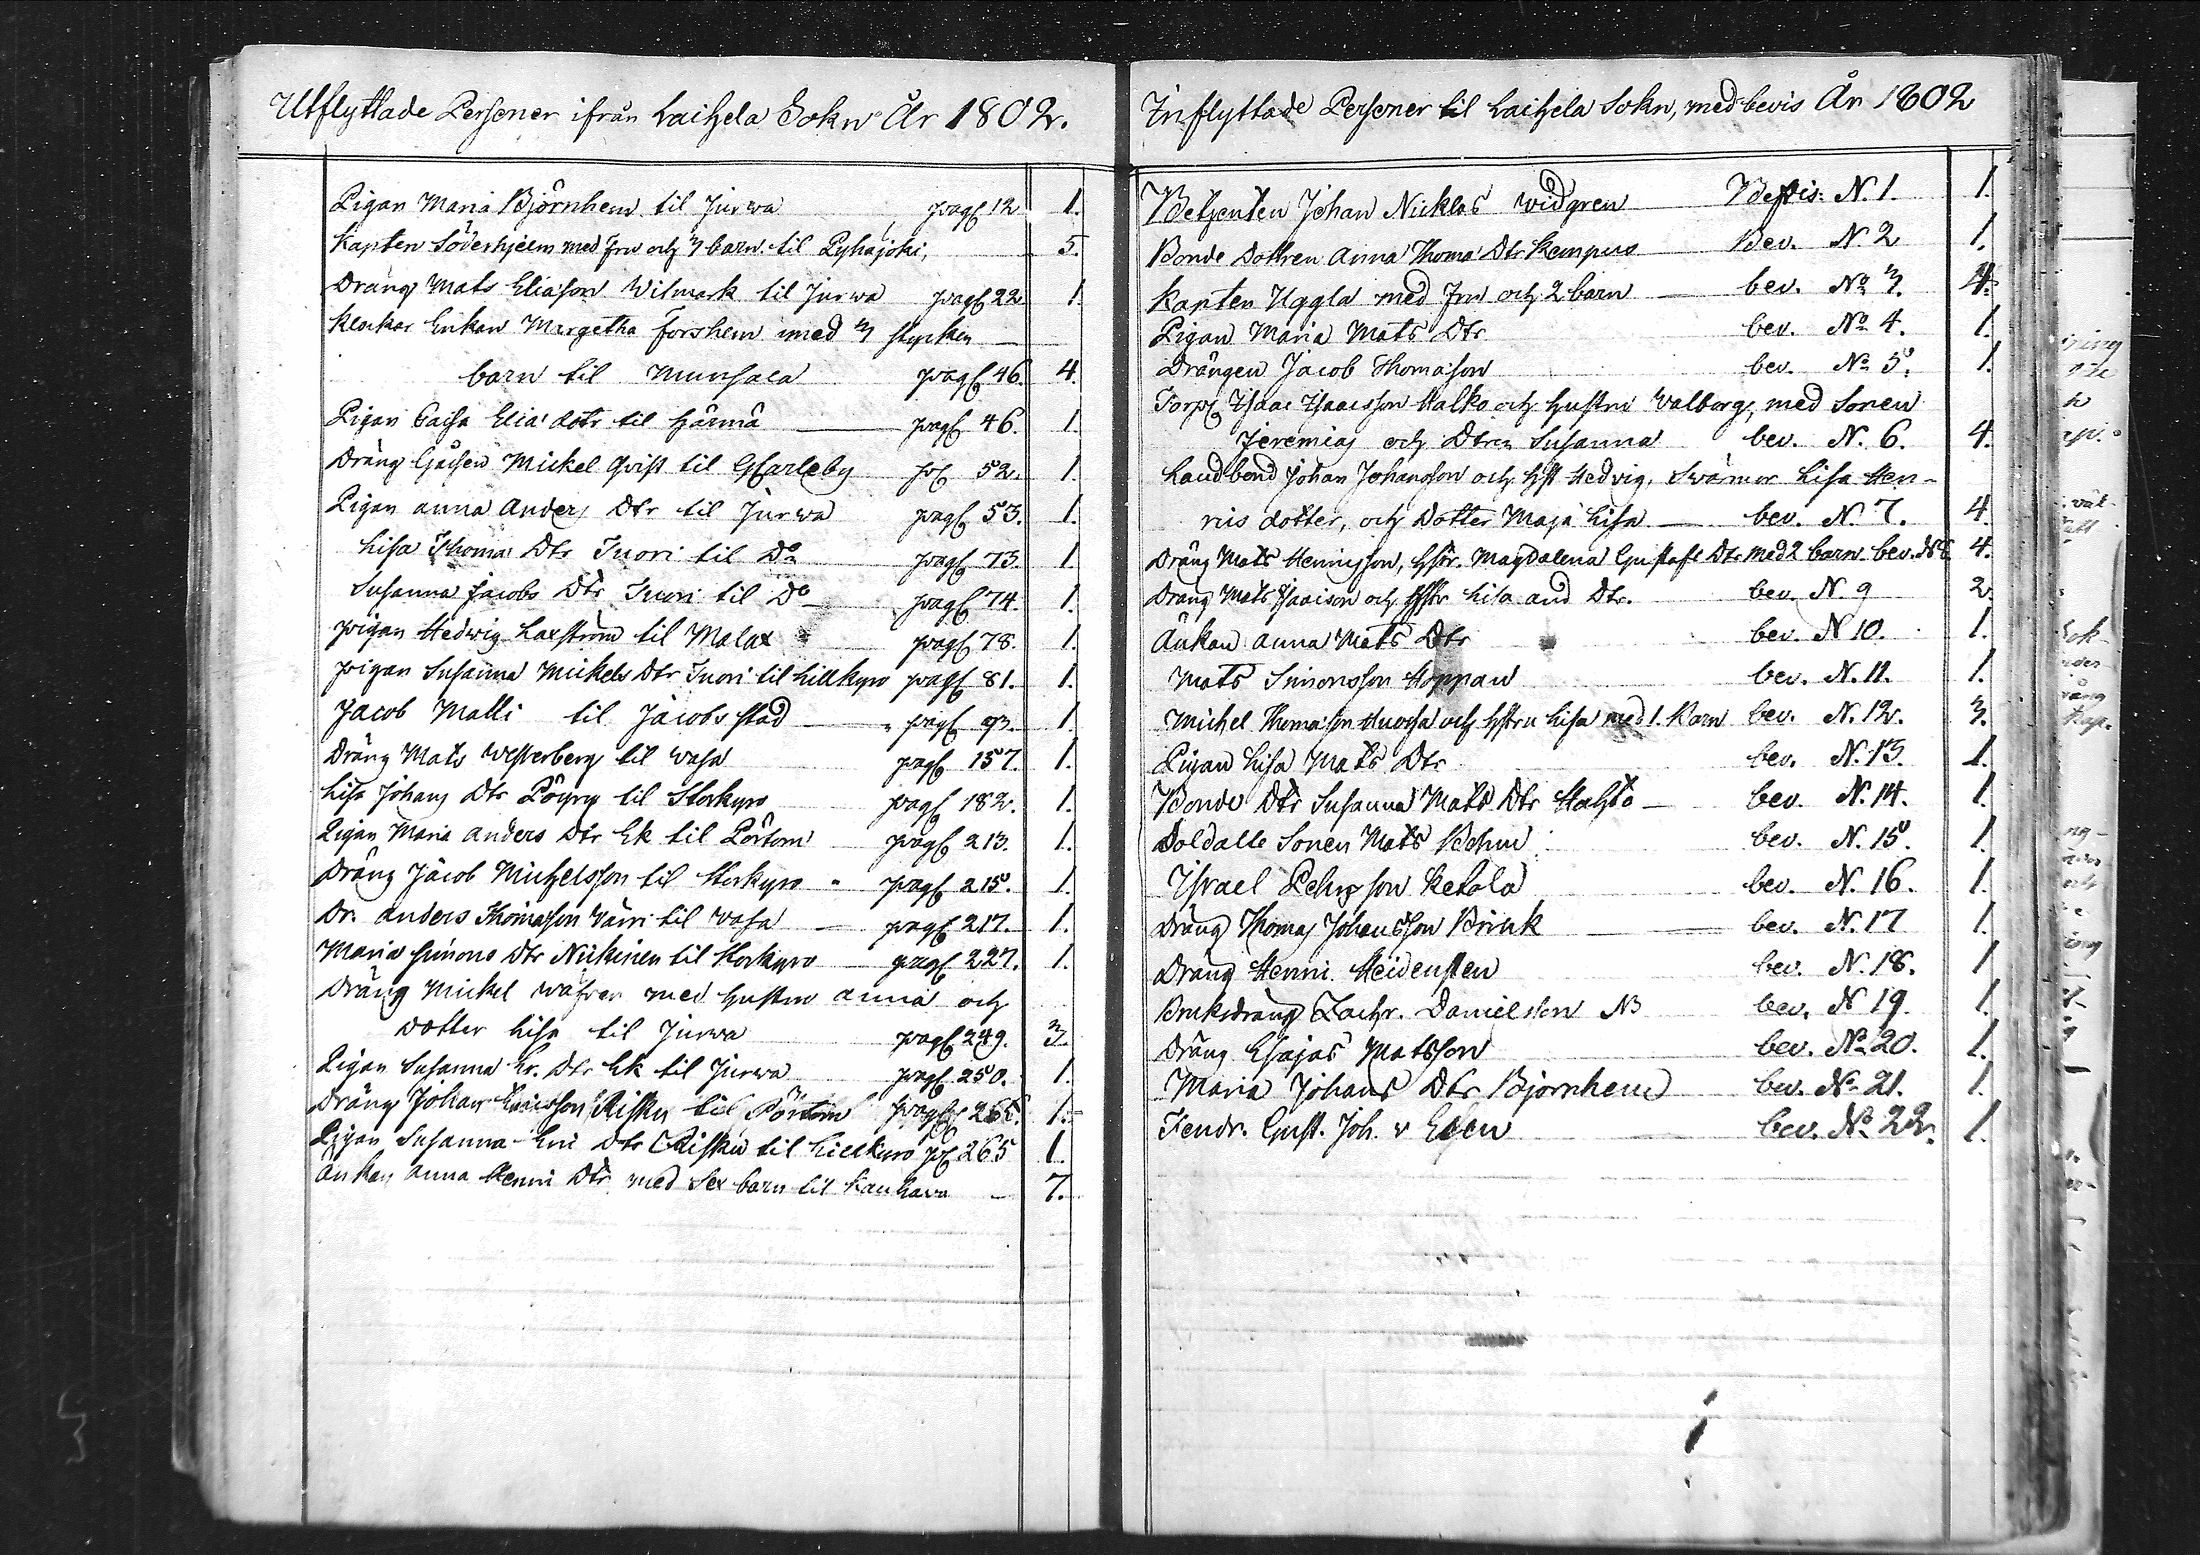 Utflyttade Personer ifrån Laihela Sokn År 1802.
Pigan Maria Björnhem til Jurwa pag 12 1.
Kapten Söderhjelm med fru och 3 barn til Pyhäjoki, 5.
Dräng Mats Eliason Wilmark til Jurwa pag 22 1.
Klockar Enkan Margetha Forshem med 3 stycken
barn til Munsala pag 46. 4.
Pigan Caisa Elia dotr til Härmä pag 46. 1.
Dräng Gåssen Mickel Qvist til GCarleby p 52. 1.
Pigan Anna Anders Dtr til Jurwa pag 53. 1.
Lisa Thoma Dtr Iuori til Do pag 73. 1.
Susanna Jacobs Dtr Iuori til Do pag 74. 1.
pigan Hedwig Laxström til Malax pag 78. 1.
pigan Susanna Mickels Dtr Iuori til Lillkyro pag 81. 1.
Jacob Matti til Jacobs stad pag 93. 1.
Dräng Mats Westerberg til Wasa pag 157. 1.
Lisa Johans Dtr Pöyry til Storkyro pag 182. 1.
Pigan Maria Anders Dtr Ek til Pörtom pag 213. 1.
Dräng Jacob Michelsson til Storkyro pag 215. 1.
Dr. Anders Thomasson Wärri til Wasa pag 217. 1.
Maria Simons Dtr Nickinen til Storkyro pag 227. 1.
Dräng Mickel med hustru Anna och
dotter Lisa til Jurwa pag 249. 3.
Pigan Susanna Er. Dtr Ek til Jurwa pag 250. 1.
Dräng Johan Ericsson Risku til Pörtom pag 265. 1.
Pigan Susanna Eric Dtr Risku til Lillkyro p 265 1.
Änkan Anna Henric Dtr med Sex barn til Kauhava 7.
Inflyttade Personer til Laihela Sokn, med bevis År 1802
Betjenten Johan Nicklas Widgren Bevis: N. 1. 1.
Bonde Dottren Anna Thoma Dtr Kempus Bev. N 2 1.
Kapten Uggla med fru och 2 barn bev. No 3. 4.
Pigan Maria Mats Dtr bev. No 4. 1.
Drängen Jacob Thomason bev. No 5. 1.
Torp Isaac Isaacsson Malko och hustru Walborg, med Sonen
Jeremias och Dtren Susanna bev. N. 6. 4.
Landbond Johan Johansson och hst Hedvig, Swärmor Lisa Hen-
ris dotter, och Dotter Maja Lisa bev. N. 7. 4.
Dräng Mats Henricsson, hstr. Magdalena Gustafs Dtr med 2 barn bev. N 8 4.
Dräng Mats Isacison och hstr Lisa And Dtr. bev. N. 9 2.
Änkan Anna Mats Dtr bev. N 10. 1.
Mats Simonsson Hoppan bev. N. 11. 1.
Michel Thomasson och hstru Lisa med 1. Barn bev. N. 12. 3.
Pigan Lisa Mats Dtr bev. N. 13. 1.
Bonde Dtr Susanna Mats Dtr Stahlbo bev. N. 14. 1.
Soldatte Sonen Mats Behm bev. N. 15. 1.
Israel Pehrsson Ketola bev. N. 16. 1.
Dräng Thomas Johansson Brink bev. N. 17 1.
Dräng Henric Heidensten bev. N. 18. 1
Bruksdräng Zachr. Danielsson NB bev. N 19. 1.
Dräng Esajas Matsson bev. No 20. 1.
Maria Johans Dtr Björnhem bev. No 21. 1.
Fendr. Gust. Joh. v Essen bev. No 22. 1.